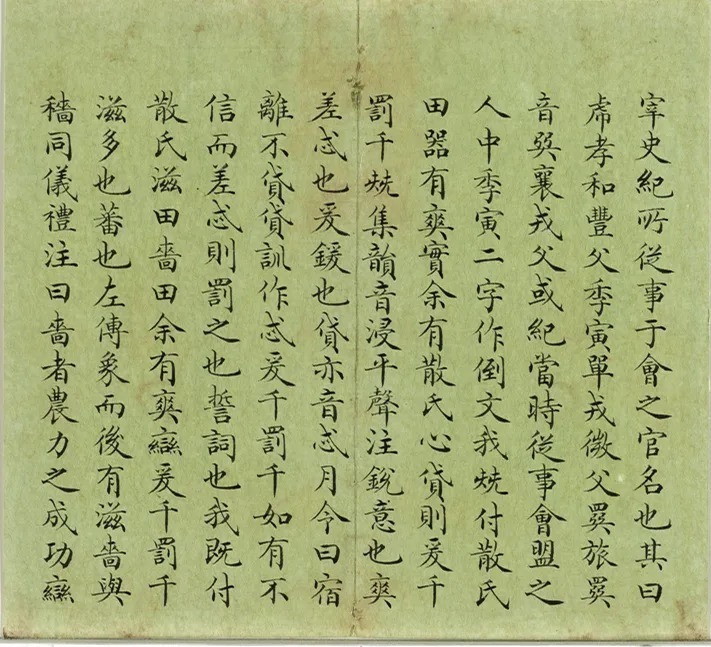 宰史紀所從事于會之官名也其曰
虎孝和豐父季寅單戎微父㠱旅㠱
音巽襄戎父或紀當時從事會盟之
人中季寅二字作倒文我兟付散氏
田器有爽實余有散氏心貸則爰千
罰千兟集韻音浸平聲注銳意也爽
差忒也爰鍰也貸亦音忒月令曰宿
離不貸貸訓作忒爰千罰千如有不
信而差忒則罰之也誓詞也我既付
散氏滋田嗇田余有爽䜌爰千罰千
滋多也蕃也左傳象而後有滋嗇與
穡同儀禮注曰嗇者農力之成功䜌